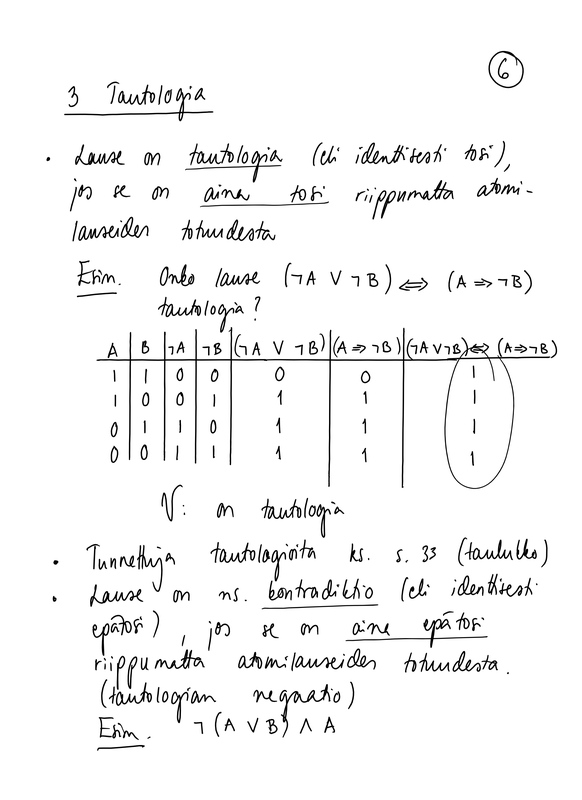 6
3 Tautologia
• Lause on tautologia (eli identtisesti tosi),
jos se on aina tosi riippumatta atomi-
lauseiden totuudesta
Esim. Onko lause (¬A ∨ ¬B) ⇔ (A ⇒ ¬B)
tautologia?
A B ¬A ¬B (¬A ∨ ¬B) (A ⇒ ¬B) (¬A∨¬B) ⇔ (A⇒¬B)
1 1 0 0 0 0 1
1 0 0 1 1 1 1
0 1 1 0 1 1 1
0 0 1 1 1 1 1
V: on tautologia
• Tunnettuja tautologioita ks. s. 33 (taulukko)
• Lause on ns. kontradiktio (eli identtisesti
epätosi), jos se on aina epätosi
riippumatta atomilauseiden totuudesta.
(tautologian negaatio)
Esim. ¬(A ∨ B) ∧ A